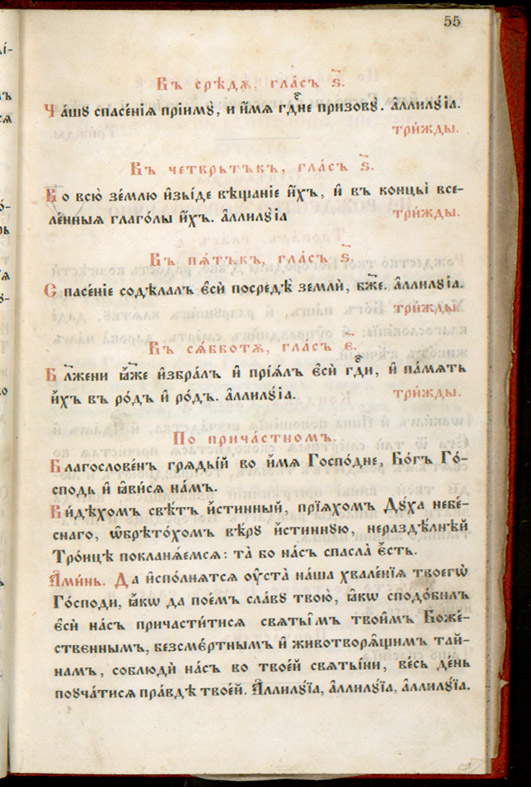 55
Въ срѣдѫ, гла́съ ѕ҃.
Ча́шꙋ спасе́нїѧ прїимꙋ̀, и и҆́мѧ гдⷭ҇не призовꙋ̀. а҆ллилꙋ́їа.
три́жды.
Въ четврътъкъ, гла́съ ѕ҃.
Во всю̀ зе́млю и҆зы́де вѣща́нїе и҆́хъ, и҆ въ концы̀ все-
ле́нныѧ глаго́лы и҆́хъ. а҆ллилꙋ́їа
три́жды.
Въ пѧ́тъкъ, гла́съ ѕ҃.
Спасе́нїе содѣ́лалъ є҆сѝ посредѣ̀ землѝ, бж҃е. а҆ллилꙋ́їа.
три́жды.
Въ сѫббо́тѫ, гла́съ є҃.
Бл҃же́ни ꙗ҆̀же и҆збра́лъ и҆ прїѧ́лъ є҆сѝ гдⷭ҇и, и҆ па́мѧть
и҆́хъ въ ро́дъ и҆ ро́дъ. а҆ллилꙋ́їа.
три́жды.
По прича́стномъ.
Благослове́нъ грѧды́й во и҆́мѧ Госпо́дне, Бо́гъ Го-
спо́дь и҆ ꙗ҆ви́сѧ на́мъ.
Ви́дѣхомъ свѣ́тъ и҆́стинный, прїѧ́хомъ Дꙋ́ха небе́-
снаго, ѡ҆брѣто́хомъ вѣ́рꙋ и҆́стиннꙋю, нераздѣ́лнѣй
Тро́ицѣ покланѧ́емсѧ: та́ бо на́съ спасла̀ є҆́сть.
А҆ми́нь. Да и҆спо́лнѧтсѧ ᲂу҆ста̀ на́ша хвале́нїѧ твоегѡ̀
Го́споди, ꙗ҆́кѡ да пое́мъ сла́вꙋ твою̀, ꙗ҆́кѡ сподо́билъ
є҆сѝ на́съ причасти́тисѧ свѧты̑мъ твои̑мъ Боже́-
ственнымъ, безсме́ртнымъ и҆ животворѧ́щимъ тай-
намъ, соблюдѝ на́съ во твое́й свѧты́ни, ве́сь де́нь
поꙋча́тисѧ пра́вдѣ твое́й. А҆ллилꙋ́їа, а҆ллилꙋ́їа, а҆ллилꙋ́їа.